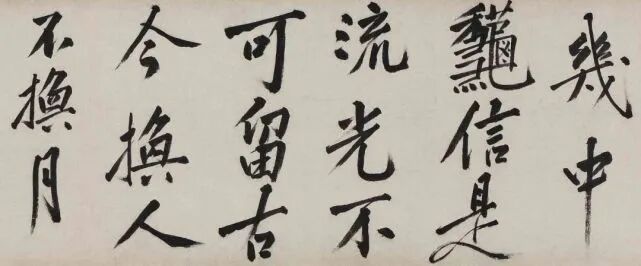 幾中
龝信是
流光不
可留古
今換人
不換月